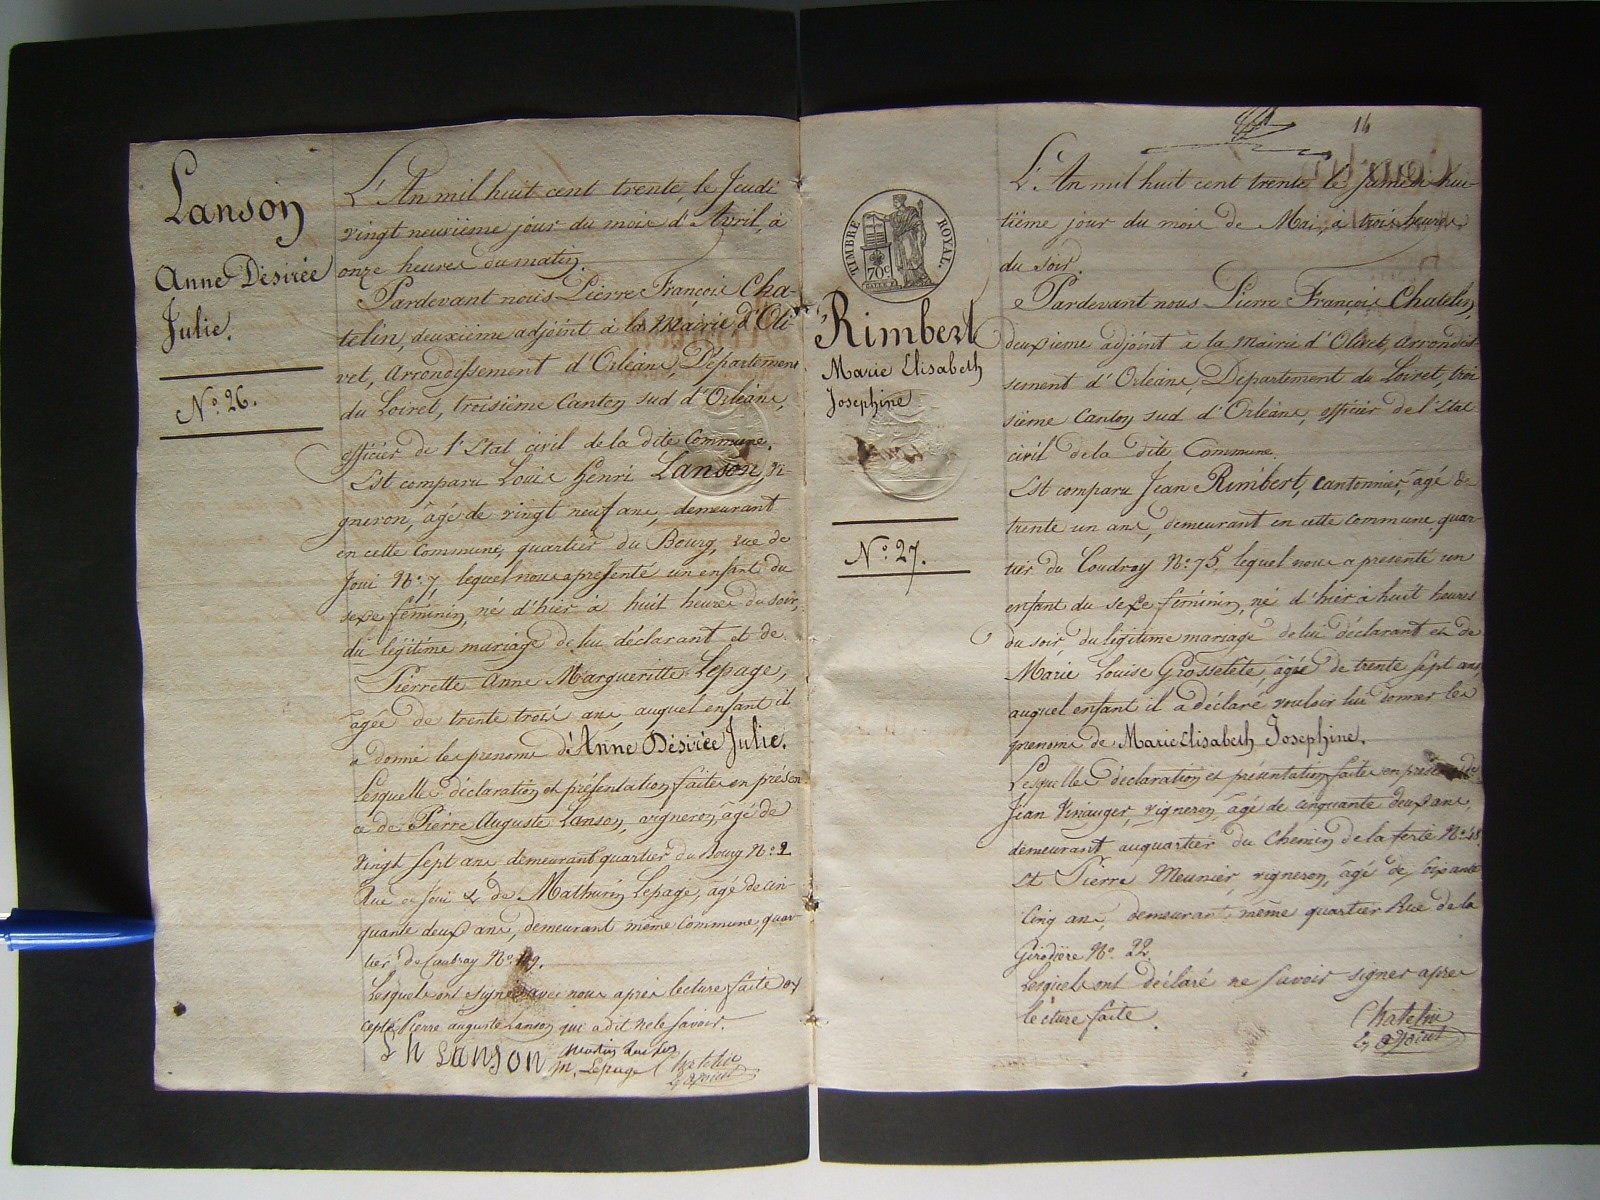 Lanson
Anne Désirée
Julie.
N.º 26.
L'An mil huit cent trente, le Jeudi
vingt neuvième jour du mois d'Avril, à
onze heures du matin.
Pardevant nous Pierre François Cha-
telin, deuxième adjoint à la Mairie d'Oli-
vet, arrondissement d'Orléans, Département
du Loiret, troisième Canton sud d'Orléans,
officier de l'Etat civil de la dite Commune.
Est comparu Louis henri Lanson, Vi-
gneron, âgé de vingt neuf ans, demeurant
en cette Commune, quartier du Bourg, rue de
Joui N.º 7, lequel nous a présenté un enfant du
sexe féminin, né d'hier à huit heures du soir,
du légitime mariage de lui déclarant et de
Pierrette Anne Margueritte Lepage,
âgée de trente trois ans auquel enfant il
a donné les prenoms d'Anne Désirée Julie.
Lesquelles déclaration et présentation faites en présen-
ce de Pierre Auguste Lanson, vigneron, âgé de
vingt sept ans, demeurant quartier du Bourg N.º 2
Rue de Joui & de Mathurin Lepage, agé de cin-
quante deux ans, demeurant même Commune, quar-
tier de Caubray N.º
Lesquels ont signé avec nous après lecture faite ex-
cepté Pierre auguste Lanson qui a dit ne le savoir.
L h Lanson
m. Lepage Chatelin
adjoint
14
TIMBRE ROYAL.
70 c
Rimbert
Marie Elisabeth
Josephine
N.º 27.
L'An mil huit cent trente le samedi hui-
tième jour du mois de Mai, à trois heures
du soir.
Pardevant nous Pierre François Chatelin,
deuxieme adjoint à la mairie d'Olivet, arrondis-
sement d'Orléans, Département du Loiret, troi
sième Canton sud d'Orléans, officier de l'Etat
civil de la dite Commune.
Est comparu Jean Rimbert, Cantonnier, âgé de
trente un ans, demeurant en cette commune quar-
tier du Coudray N.º 75, lequel nous a presenté un
enfant du sexe féminin, né d'hier à huit heures
du soir, du légitime mariage de lui déclarant et de
Marie Louise Grosseteté, âgée de trente sept ans,
auquel enfant il a déclaré vouloir lui donner les
prenoms de Marie Elisabeth Josephine.
Lesquelles déclaration et présentation faites en présence de
Jean vigneron âgé de cinquante deux ans,
demeurant au quartier du Chemin de la ferté N.º 48
Et Pierre Meunier, vigneron, âgé de soixante
Cinq ans, demeurant même quartier Rue de la
Girodière N.º 22.
Lesquels ont déclaré ne savoir signer après
lecture faite.
Chatelin
adjoint